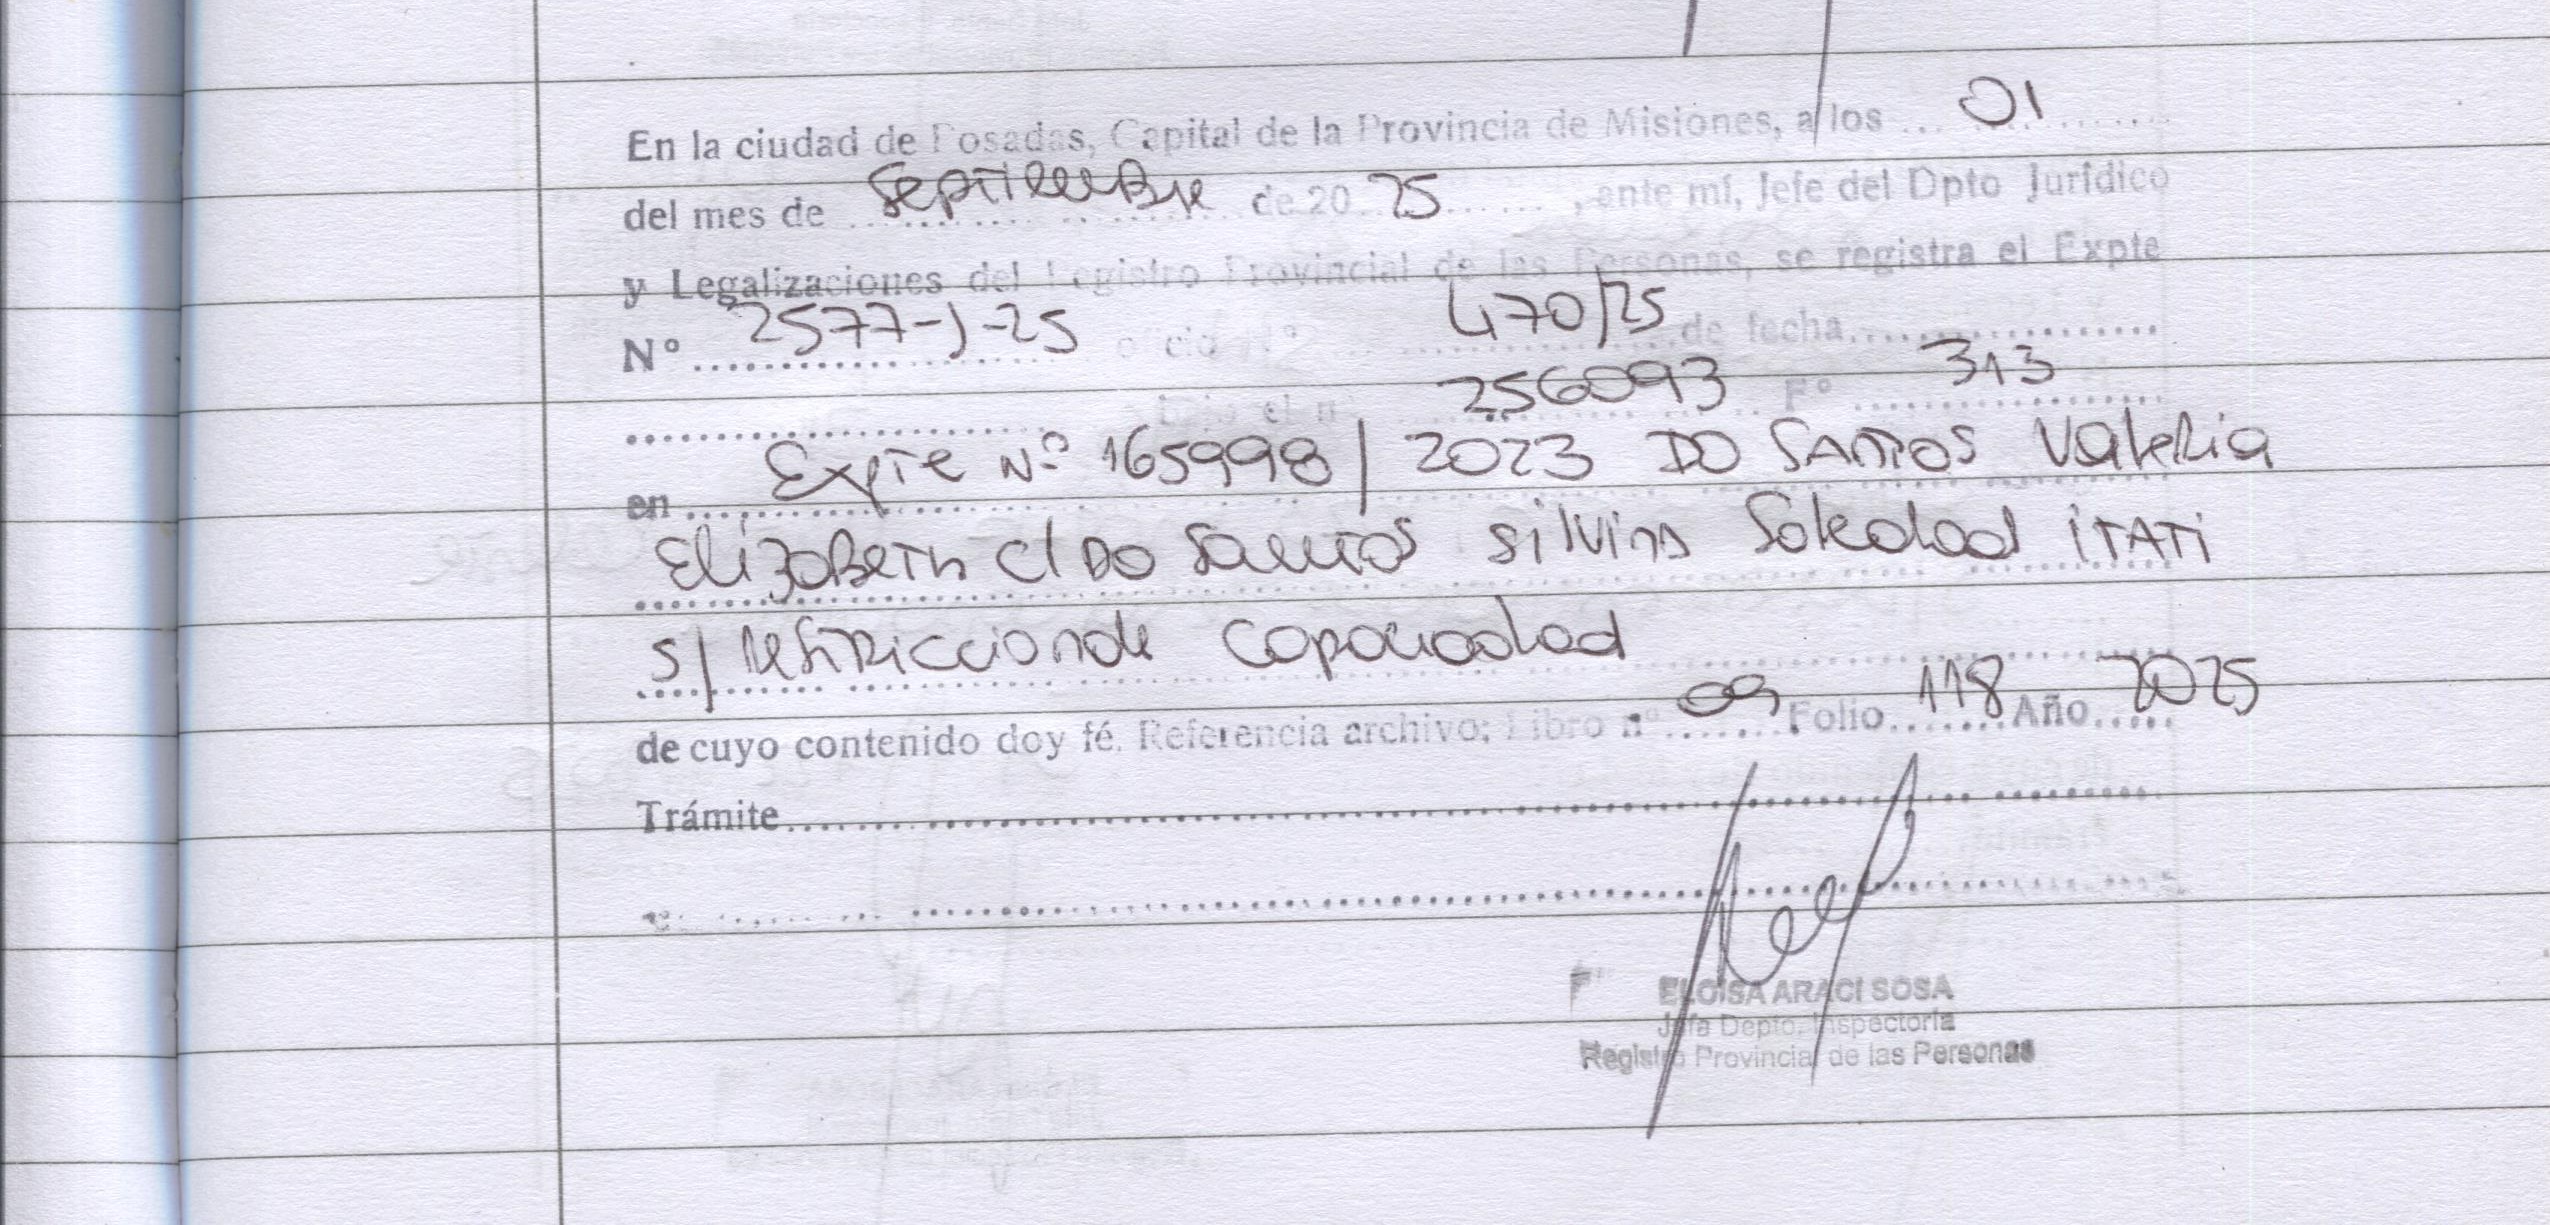 En la ciudad de Posadas, Capital de la Provincia de Misiones, a los ... 01 ..........
del mes de ... Septiembre ... de 20 25 ........ , ante mí, Jefe del Dpto Jurídico
y Legalizaciones del Registro Provincial de las Personas, se registra el Expte
N° 2577-J-25 oficio N° 470/25 de fecha...................
.......................... bajo el n° 256093 F° 313
en Expte N° 165998/2023 DO SANTOS Valeria
Elizabeth c/ DO Santos Silvina Soledad ITATI
s/ restriccion de capacidad
de cuyo contenido doy fé. Referencia archivo: Libro n° 09 Folio 118 Año 2025
Trámite..............................
ELOISA ARACI SOSA
Jefa Depto. Inspectoría
Registro Provincial de las Personas